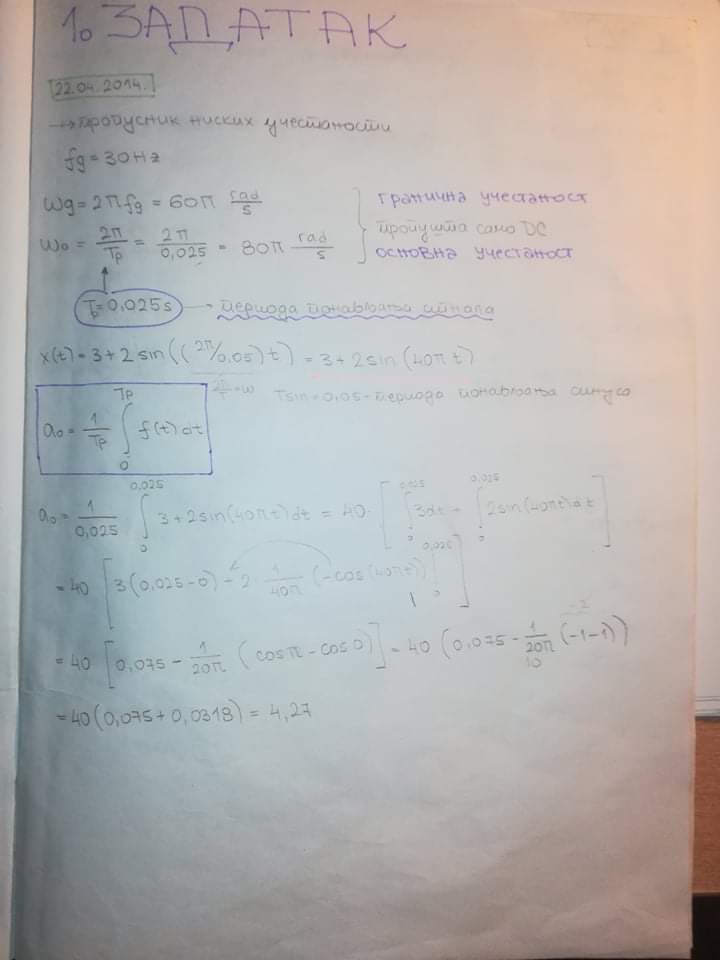 1. ЗАДАТАК
22.04.2014.
→ пропусник ниских учестаности
fg = 30Hz
ωg = 2πfg = 60π rad/s } гранична учестаност
пропушта само DC
ω₀ = 2π/Tp = 2π/0,025 = 80π rad/s основна учестаност
Tp = 0,025s → периода понављања сигнала
x(t) = 3 + 2 sin((2π/0.05)t) = 3 + 2 sin(40πt)
2π/T = ω Tsin = 0,05 - периода понављања синуса
a₀ = 1/Tp ∫₀^Tp f(t)dt
a₀ = 1/0,025 ∫₀^0,025 3 + 2sin(40πt)dt = 40 · [∫₀^0,025 3dt + ∫₀^0,025 2sin(40πt)dt]
= 40 [3(0,025-0) - 2 1/40π (-cos(40πt)) |₀^0,025]
= 40 [0,075 - 1/20π (cosπ - cos0)] = 40 (0,075 - 1/20π (-1-1))
-2
10
= 40(0,075 + 0,0318) = 4,27